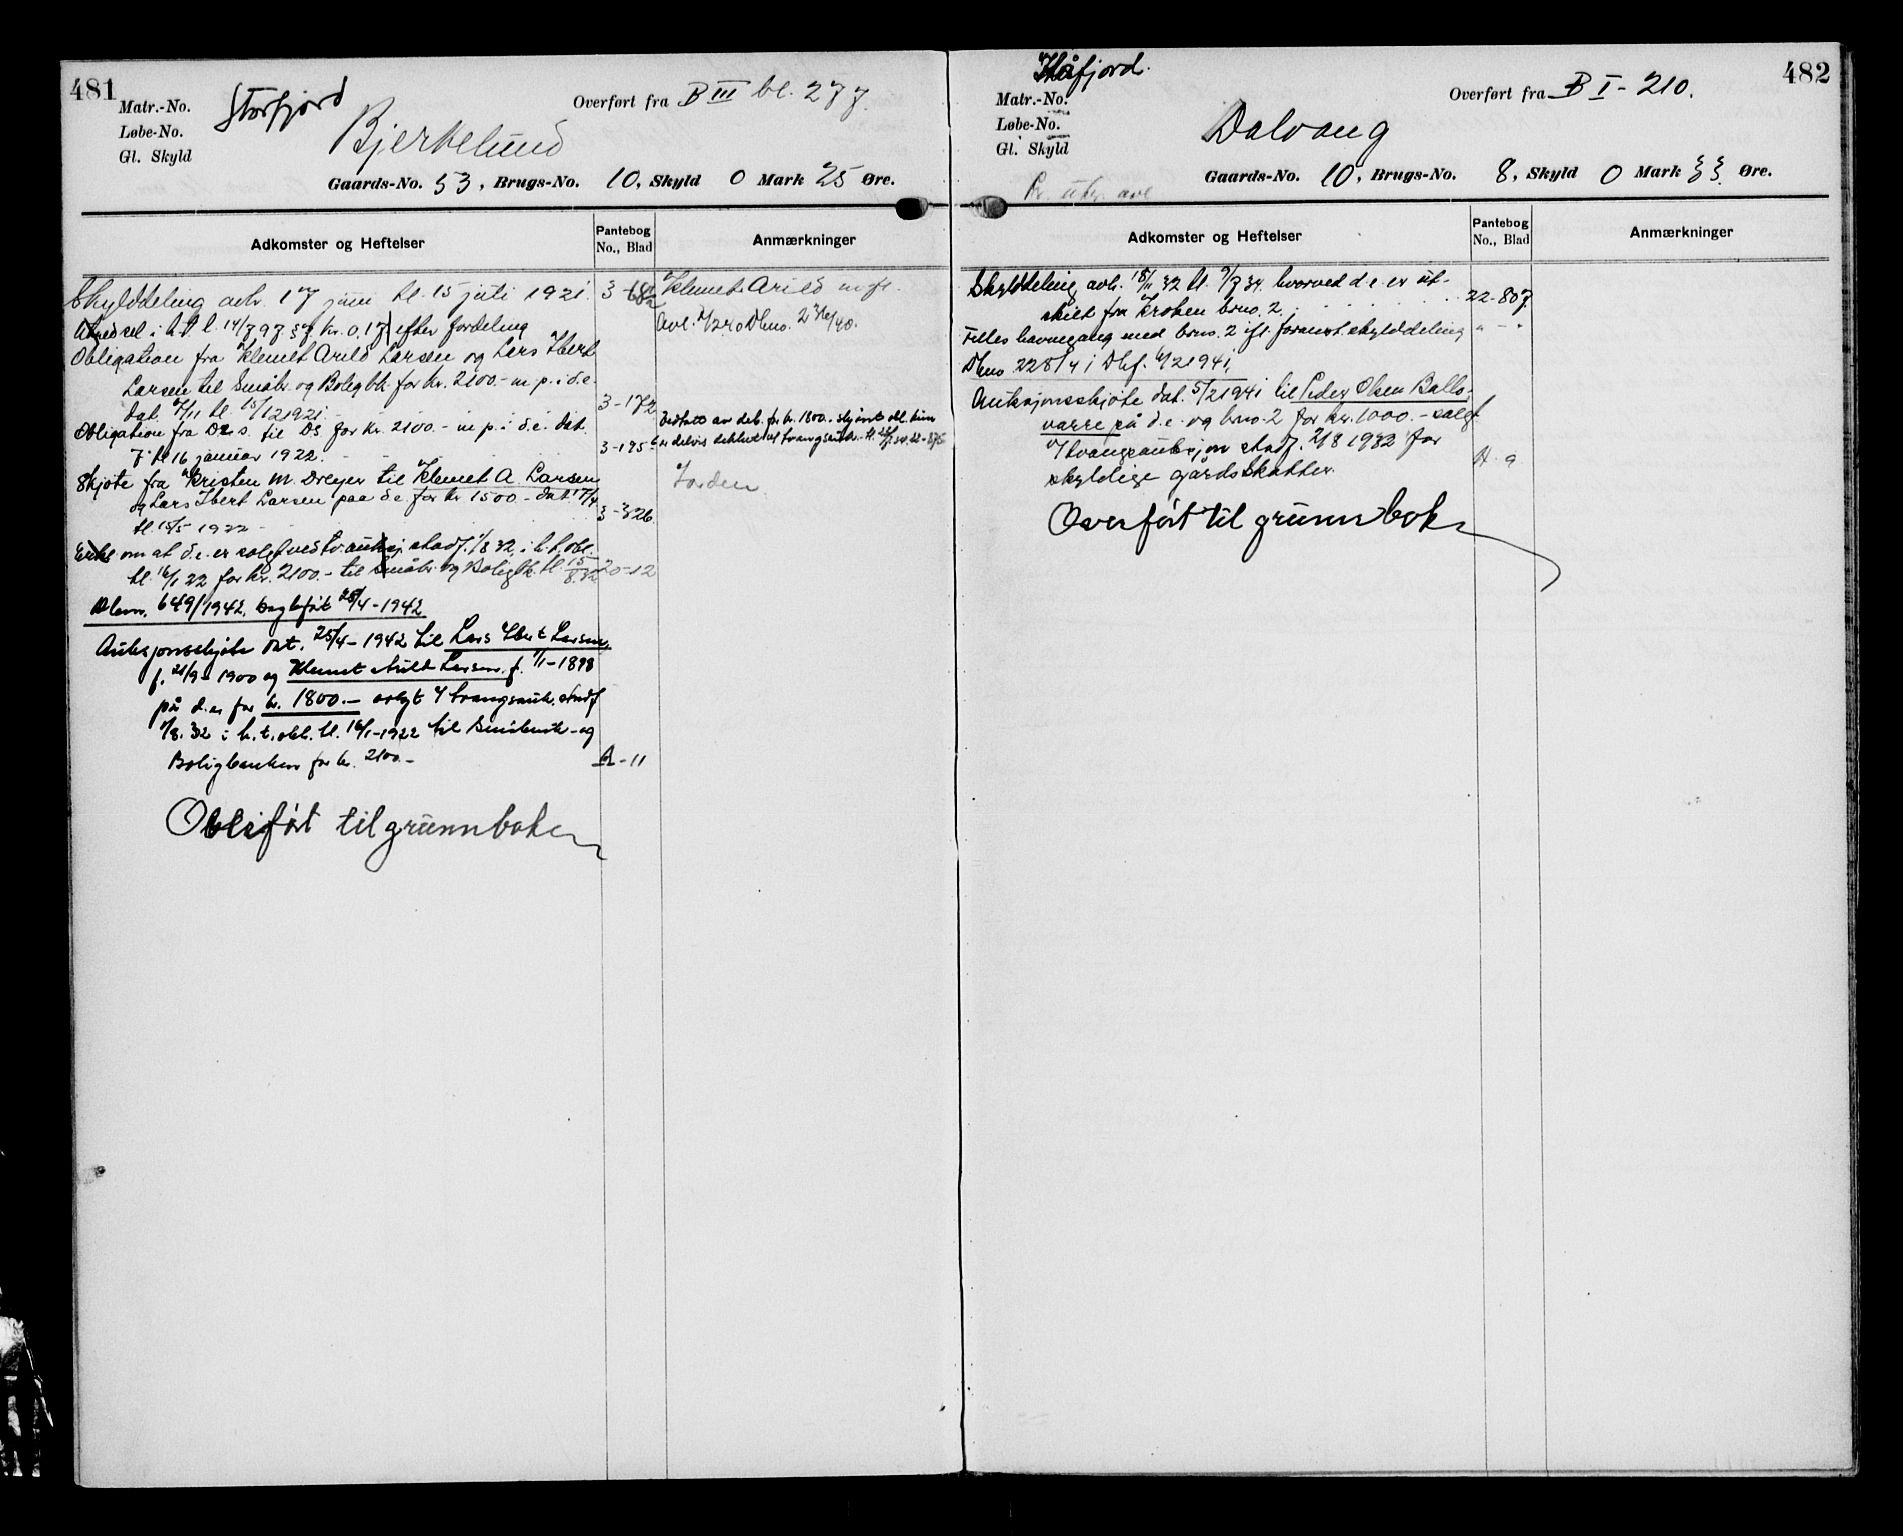 481
Matr.-No.
Løbe-No.
Gl. Skyld
Storfjord
Bjerkelund
Overført fra B III bl. 277.
Gaards-No. 53, Brugs-No. 10, Skyld 0 Mark 25 Øre.
Adkomster og Heftelser
Pantebog
No., Blad
Anmærkninger
Skylddeling avh. 17 juni tl. 15 juli 1921. 3-
Klemet Arild m. fl.
14/7 97 kr. 0,17 efter fordeling
Obligation fra Klemet Arild Larsen og Lars Ibert
Larsen til Småbr. og Boligbk. for kr. 2100.- m. p. i d.e.
dat. /11 tl. 15/12 1921. 3-172
Obligation fra Ds. til Ds for kr. 2100.- m p. i d.e. dat.
7. tl. 16 januar 1922. 3-195
Restbel. av deb. for kr. 1800.- skjønt obl. kun
er delvis dekket ved tvangsauk.
Skjøte fra Kristen M. Dreyer til Klemet A. Larsen
og Lars Ibert Larsen paa d.e. for kr. 1500 - dat. 17/4
tl. 15/5 1922 - 3-326
Jorden
om at d.e. er solgt ved tv.auksj. stadf. 1/8 32, i h.t. obl.
tl. 16/1 22 for kr. 2100.- til Småbr. og Boligbk. tl. 15/8.32 20-12
Dbnr. 649/1942. Dagbført 28/4-1942
Auksjonsskjøte dat. 25/4-1942 til Lars Ibert Larsen,
f. 21/9-1900 og Klemet Arild Larsen f. 1/1-1898
på d.e. for kr. 1800.- solgt v/ tvangsauk. stadf
1/8.32 i h.t. obl. tl. 16/1-1922 til Småbruk- og
Boligbanken for kr. 2100.- A-11
Overført til grunnboken
482
Kåfjord.
Matr.-No.
Løbe-No.
Gl. Skyld
Dalvang
Overført fra B I - 210.
Gaards-No. 10, Brugs-No. 8, Skyld 0 Mark 33 Øre.
Adkomster og Heftelser
Pantebog
No., Blad
Anmærkninger
Skylddeling avh. 18/11 32 tl. 9/7 34. hvorved d.e. er ut-
skilt fra Kroken brno. 2. 22-807
Felles havnegang med brno. 2 ifl. forannt. skylddeling " - "
Dbno 228/41 Dbf. 6/2 1941
Auksjonsskjøte dat. 5/2 1941 til Peder Olsen Ballo-
varre på d.e. og brno. 2 for kr. 1000.- solgt
v/ tvangsauksjon stadf. 2/8 1932 for
skyldige gårdsskatter. A - 9
Overført til grunnboken